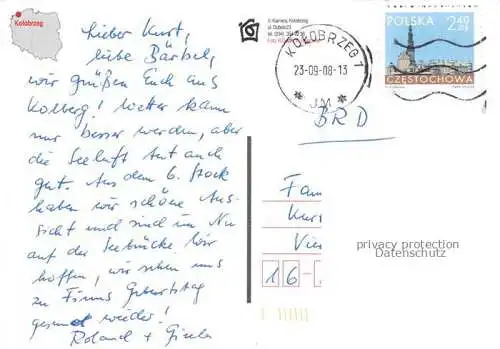 Kołobrzeg
Lieber Kurt,
liebe Bärbel,
wir grüßen Euch aus
Kolberg! Wetter kann
nur besser werden, aber
die Seeluft tut auch
gut. Aus dem 6. Stock
haben wir schöne Aus-
sicht und sind im Nu
auf der Seebrücke. Wir
hoffen, wir sehen uns
zu Geburtstag
gesund wieder!
Roland +
KOŁOBRZEG 1
23-09-08-13
JM
POLSKA 2,40
CZĘSTOCHOWA
BRD
Fam
Kur
Vie
16-
privacy protection
Datenschutz